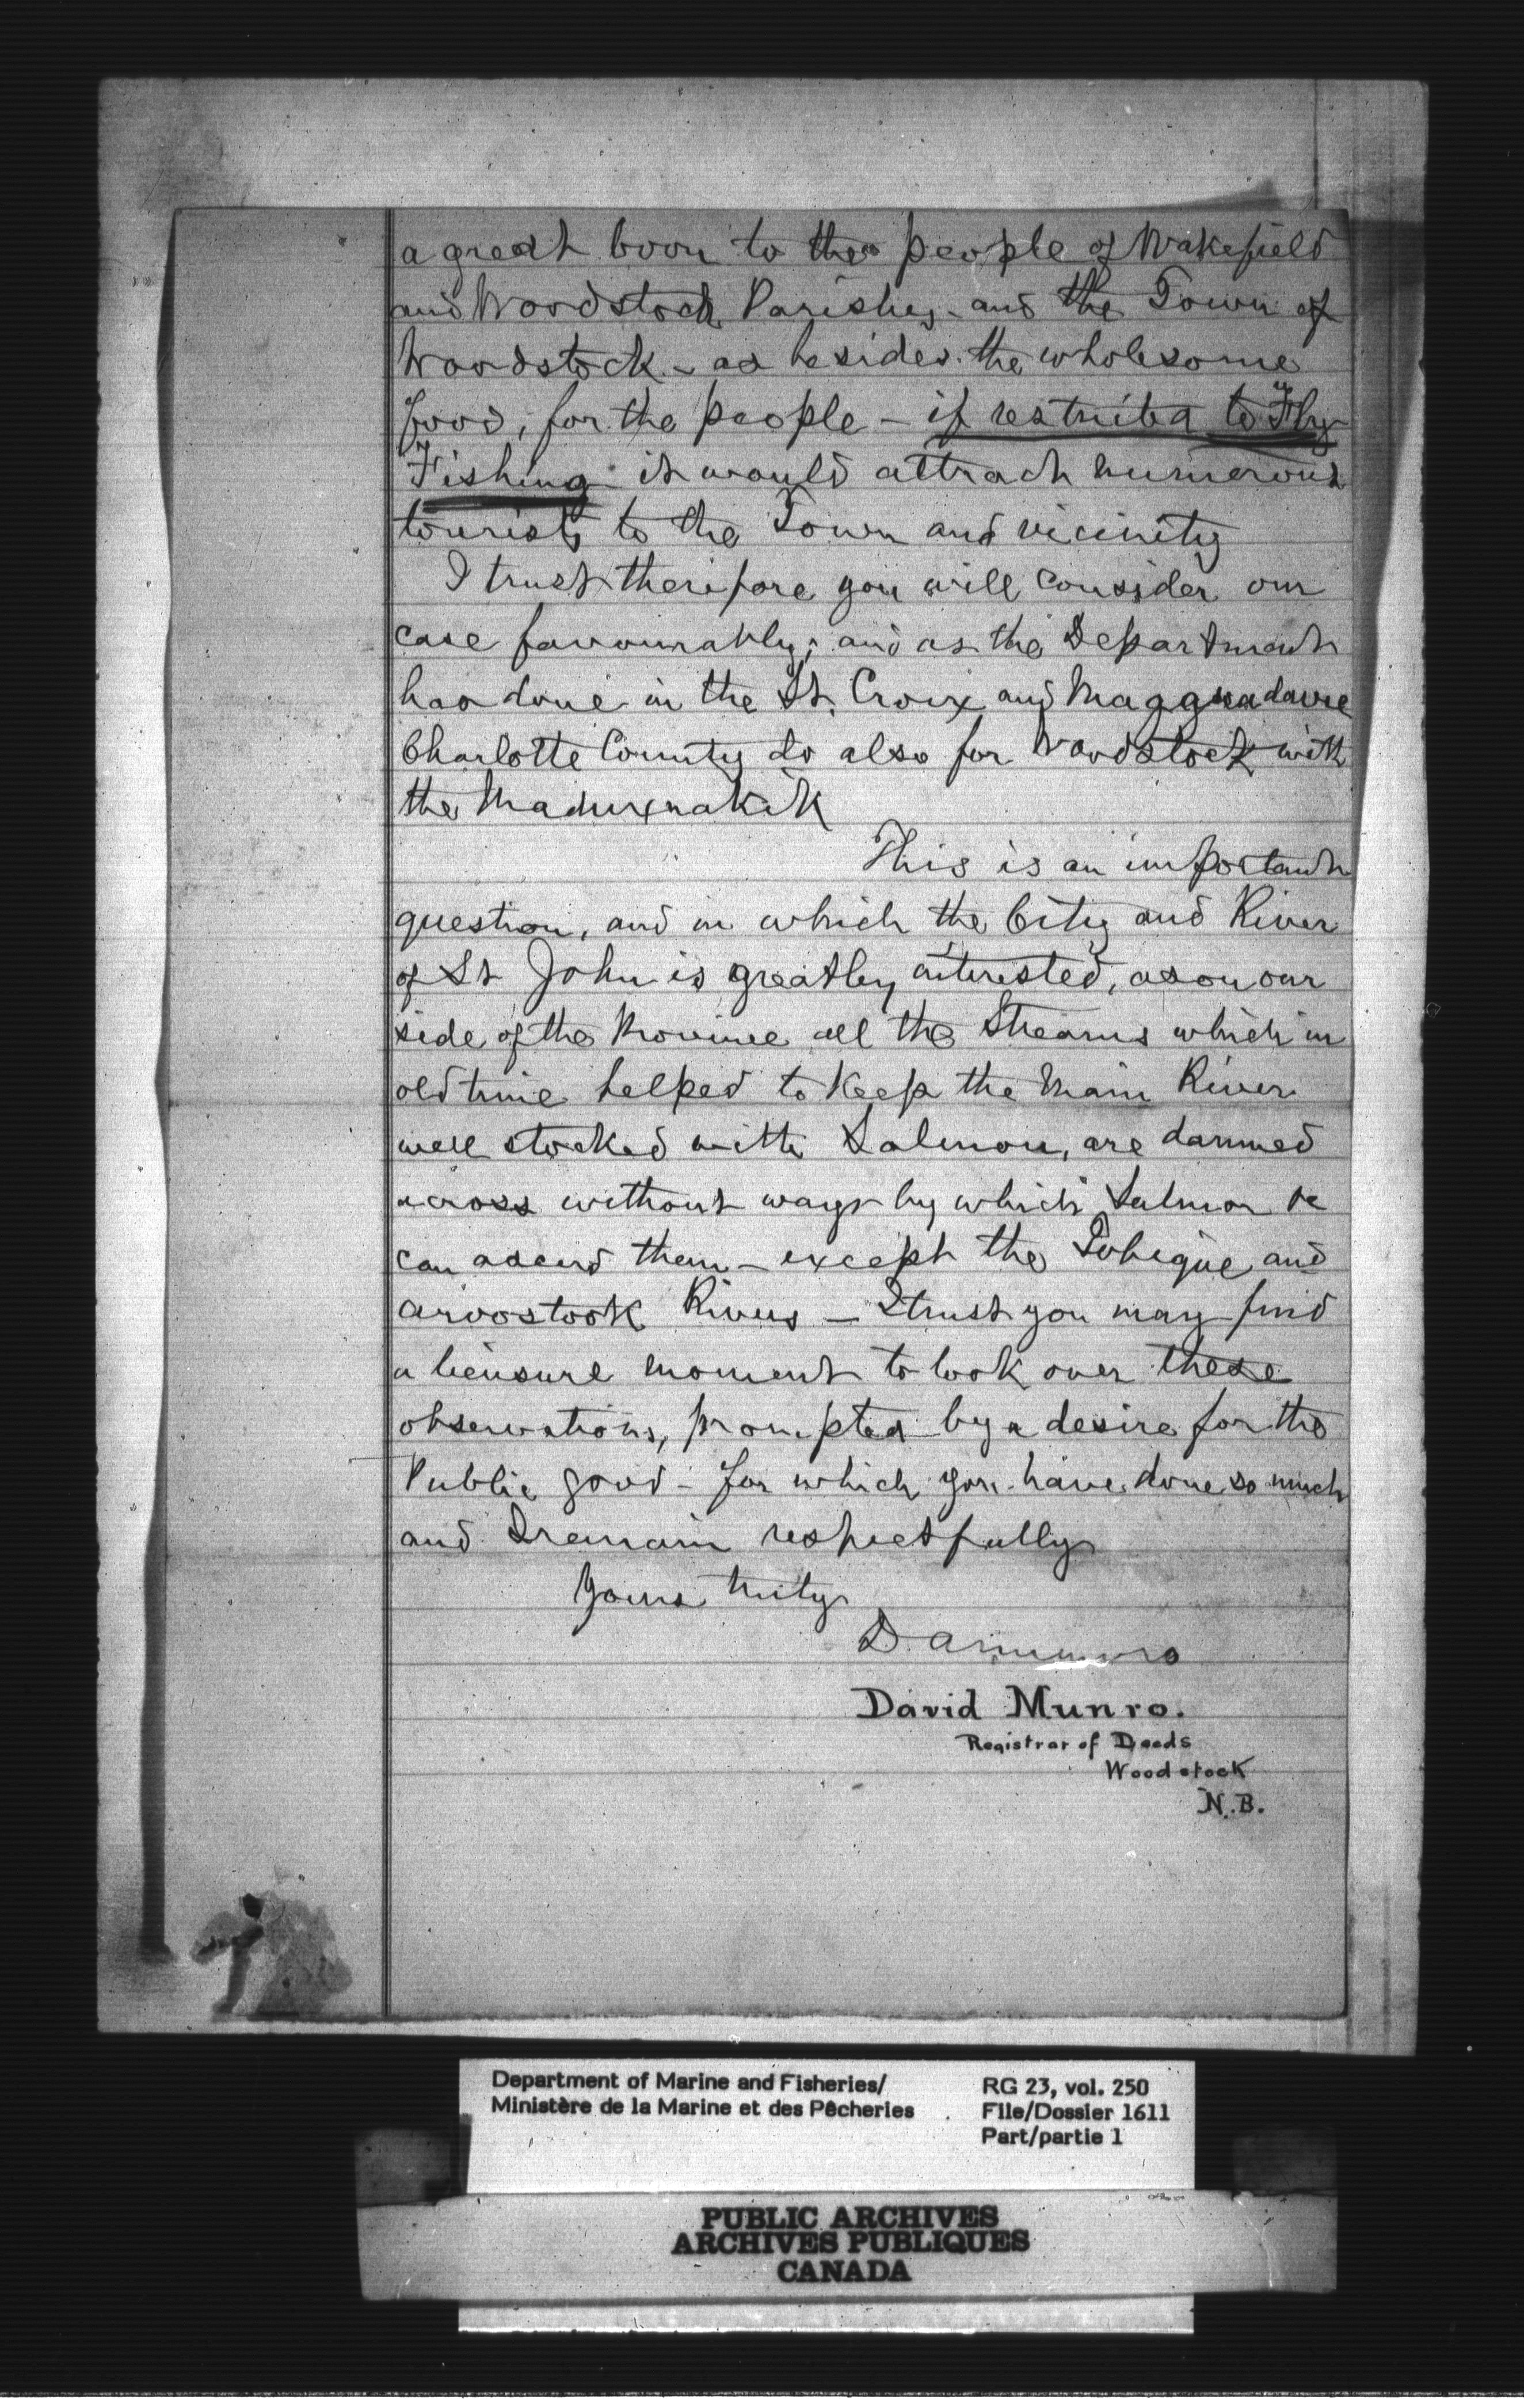 a great boon to the people of Wakefield
and Woodstock Parishes - and the Town of
Woodstock - as besides the wholesome
food, for the people - if restricted to "Fly
Fishing" it would attract numerous
tourists to the Town and vicinity
I trust therefore you will consider our
case favourably; and as the Department
has done in the St. Croix and Magguadavie
Charlotte County do also for Woodstock with
the Maduxnakik
This is an important
question, and in which the City and River
of St John is greatly interested, as on our
side of the Province all the Streams which in
old time helped to keep the Main River
well stocked with Salmon, are dammed
across without ways by which Salmon
can ascend them - except the Tobique and
Aroostook Rivers - I trust you may find
a leinsure moment to look over these
observations, prompted by a desire for the
Public good - for which you have done so much
and I remain respectfully
Yours truly
D Munro
David Munro.
Registrar of Deeds
Woodstock
N.B.
Department of Marine and Fisheries/
Ministère de la Marine et des Pêcheries
RG 23, vol. 250
File/Dossier 1611
Part/partie 1
PUBLIC ARCHIVES
ARCHIVES PUBLIQUES
CANADA